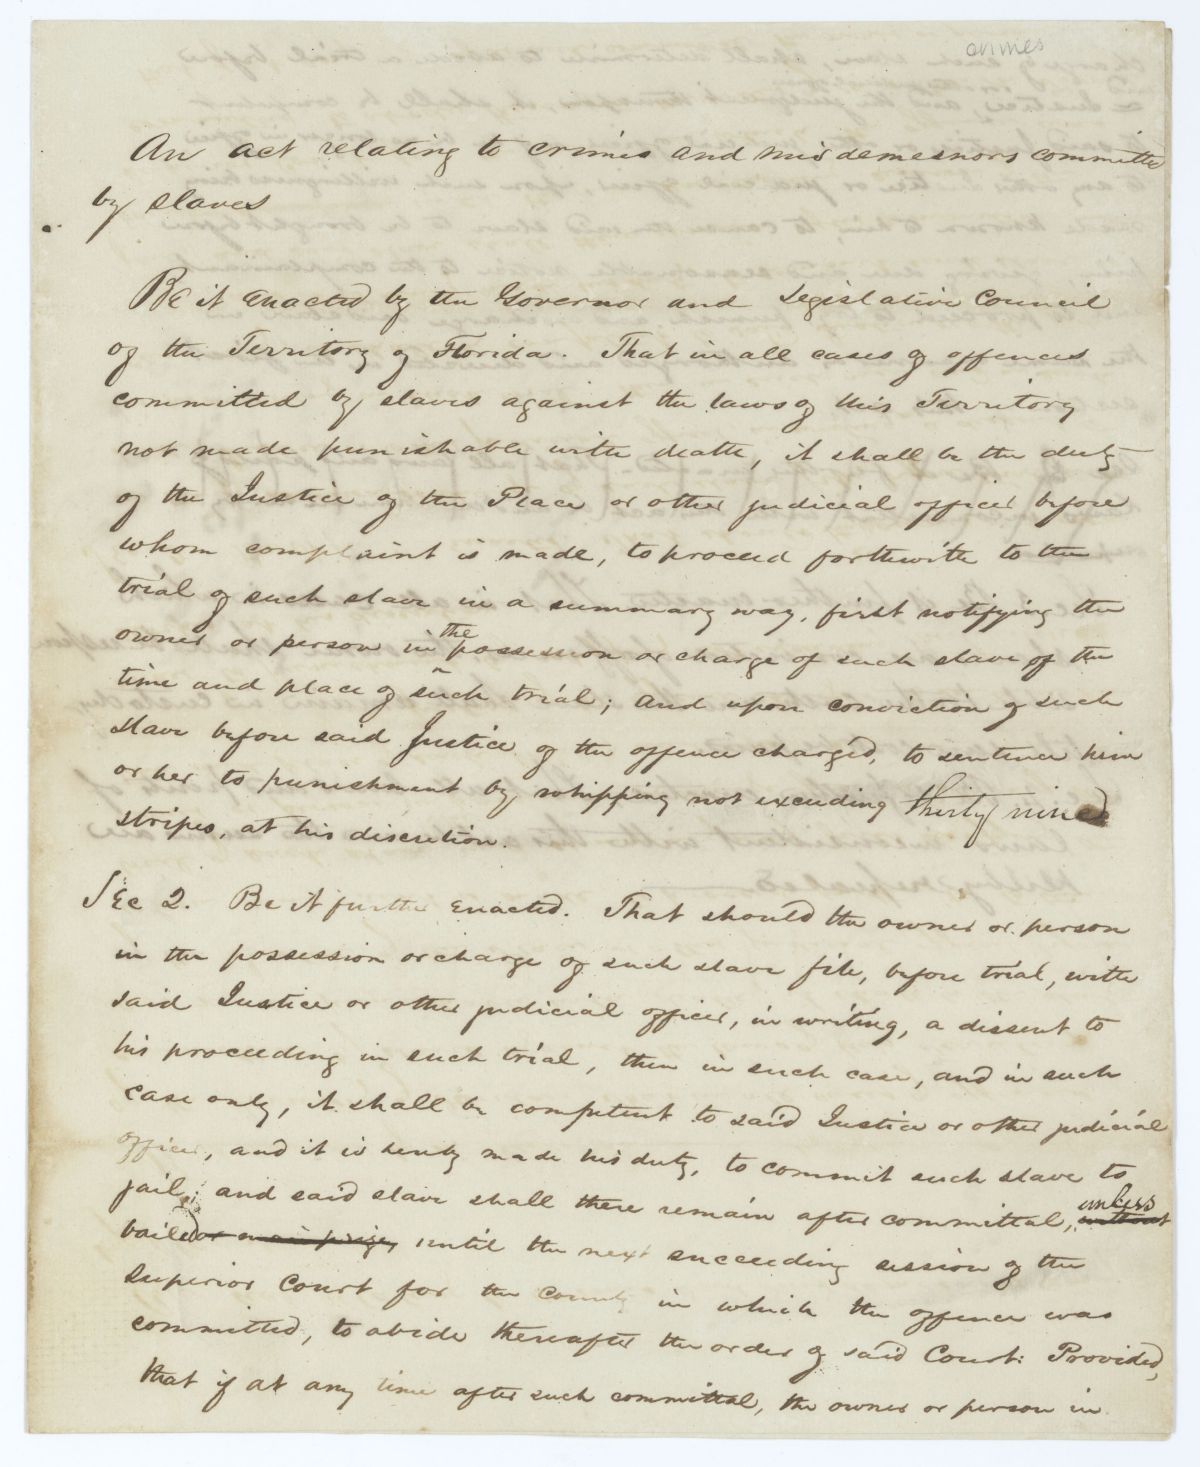 crimes
An act relating to crimes and misdemesnors committe
by slaves
Be it Enacted by the Governor and Legislative Council
of the Territory of Florida. That in all cases of offences
committed by slaves against the laws of this Territory
not made punishable with death, it shall be the duty
of the Justice of the Peace or other judicial officer before
whom complaint is made, to proceed forthwith to the
trial of such slave in a summary way, first notifying the
owner or person in the possession or charge of such slave of the
time and place of such trial; And upon conviction of such
slave before said Justice of the offence charged, to sentence him
or her to punishment by whipping not exceeding thirty nine
stripes, at his discretion.
Sec 2. Be it further Enacted. That should the owner or person
in the possession or charge of such slave file, before trial, with
said Justice or other judicial officer, in writing, a dissent to
his proceeding in such trial, then in such case, and in such
case only, it shall be competent to said Justice or other judicial
officer, and it is hereby made his duty, to commit such slave to
jail; and said slave shall there remain after committal, unless without
bailed or mainprize, until the next succeeding session of the
Superior Court for the County in which the offence was
committed, to abide thereafter the order of said Court: Provided,
that if at any time after such committal, the owner or person in